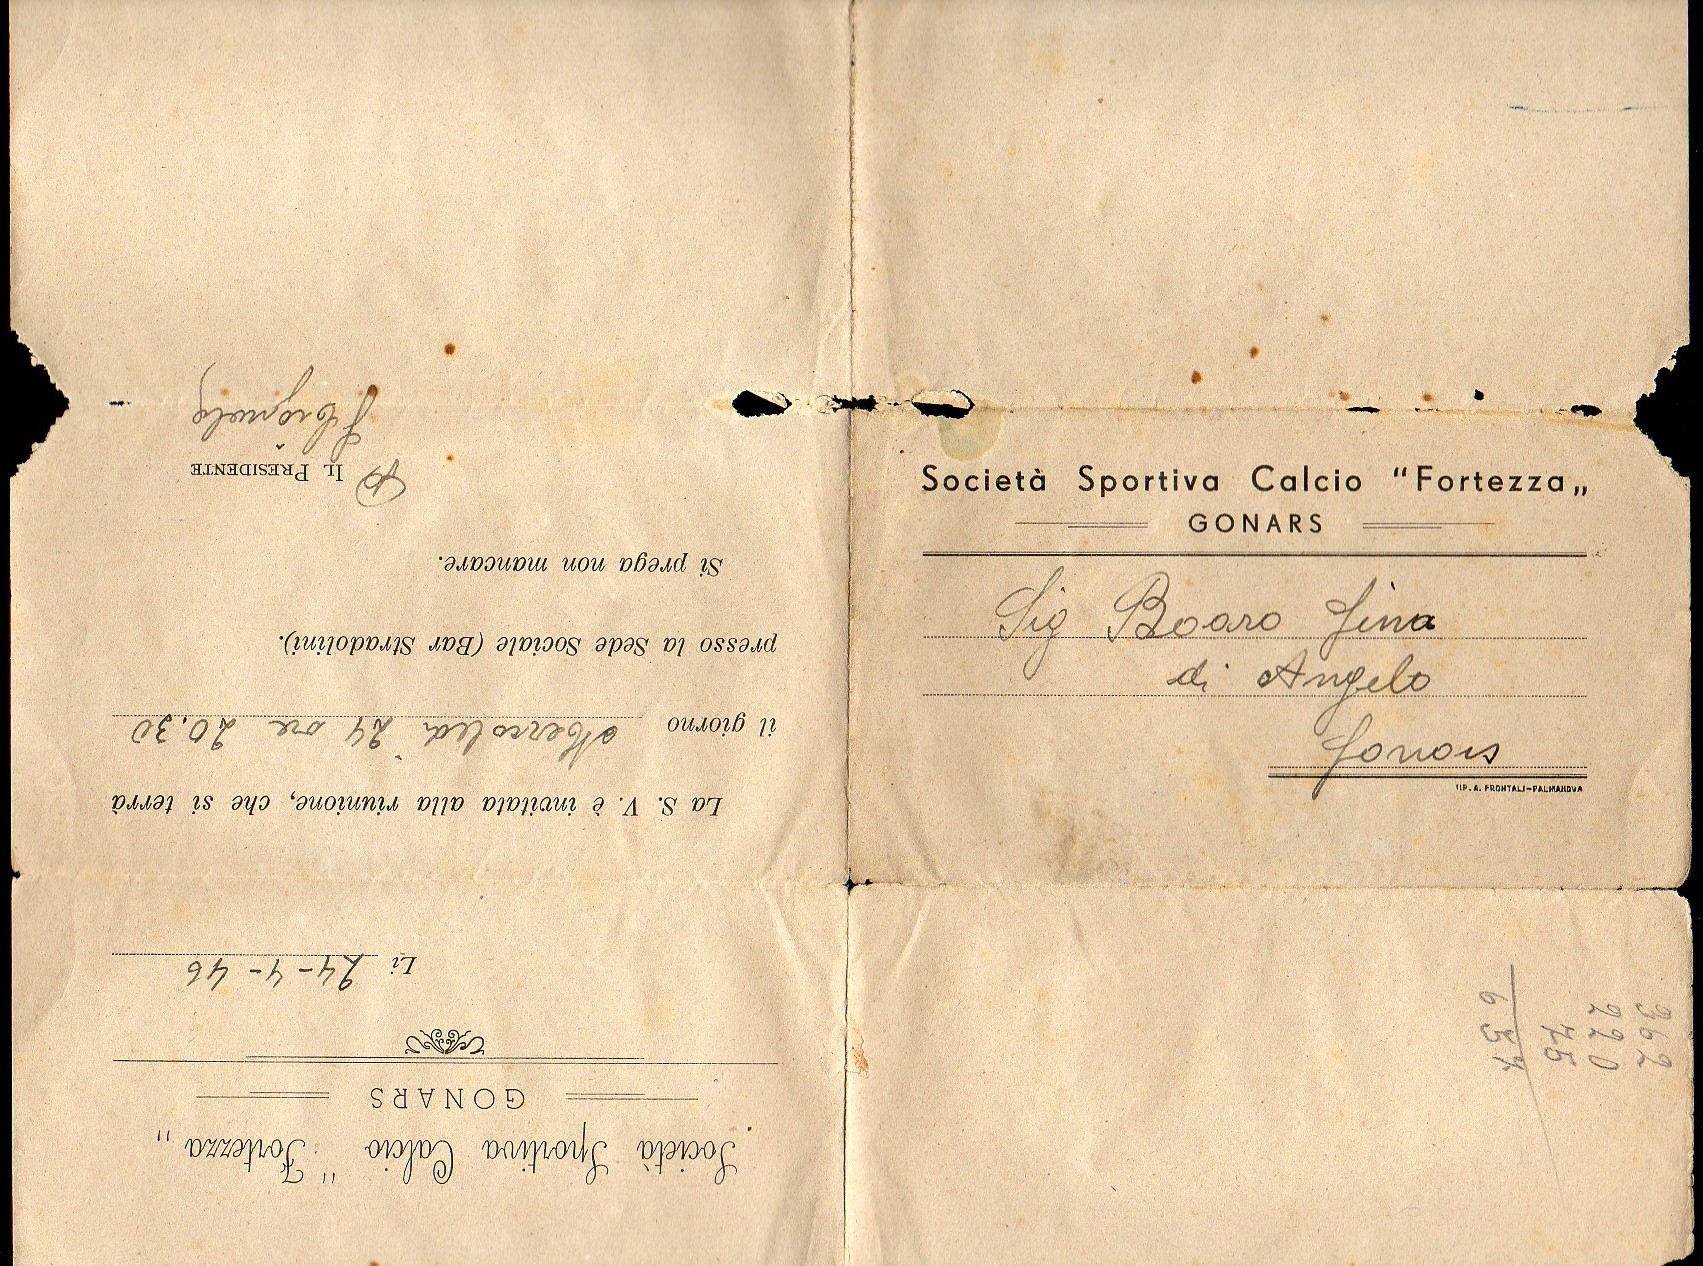 Società Sportiva Calcio "Fortezza„
GONARS
Sig Boaro Gina
di Angelo
Gonars
TIP. A. FRONTALI-PALMANOVA
Società Sportiva Calcio "Fortezza„
GONARS
Li 24-4-46
La S. V. è invitata alla riunione, che si terrà
il giorno Mercoledì 24 ore 20.30
presso la Sede Sociale (Bar Stradolini).
Si prega non mancare.
IL PRESIDENTE